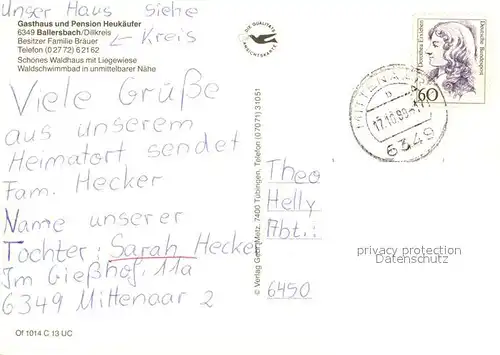 Unser Haus siehe
← Kreis
Gasthaus und Pension Heukäufer
6349 Ballersbach/Dillkreis
Besitzer Familie Bräuer
Telefon (0 27 72) 6 21 62
Schönes Waldhaus mit Liegewiese
Waldschwimmbad in unmittelbarer Nähe
Viele Grüße
aus unserem
Heimatort sendet
Fam. Hecker
Name unserer
Tochter: Sarah Hecker
Im Gießhof. 11a
6349 Mittenaar 2
Of 1014 C 13 UC
DIE QUALITÄTS
ANSICHTSKARTE
© Verlag Gebr. Metz, 7400 Tübingen, Telefon (07071) 31051
Dorothea Erxleben
Deutsche Bundespost
60
MITTENAAR
6349
Theo
Helly
Abt.:
6450
privacy protection
Datenschutz